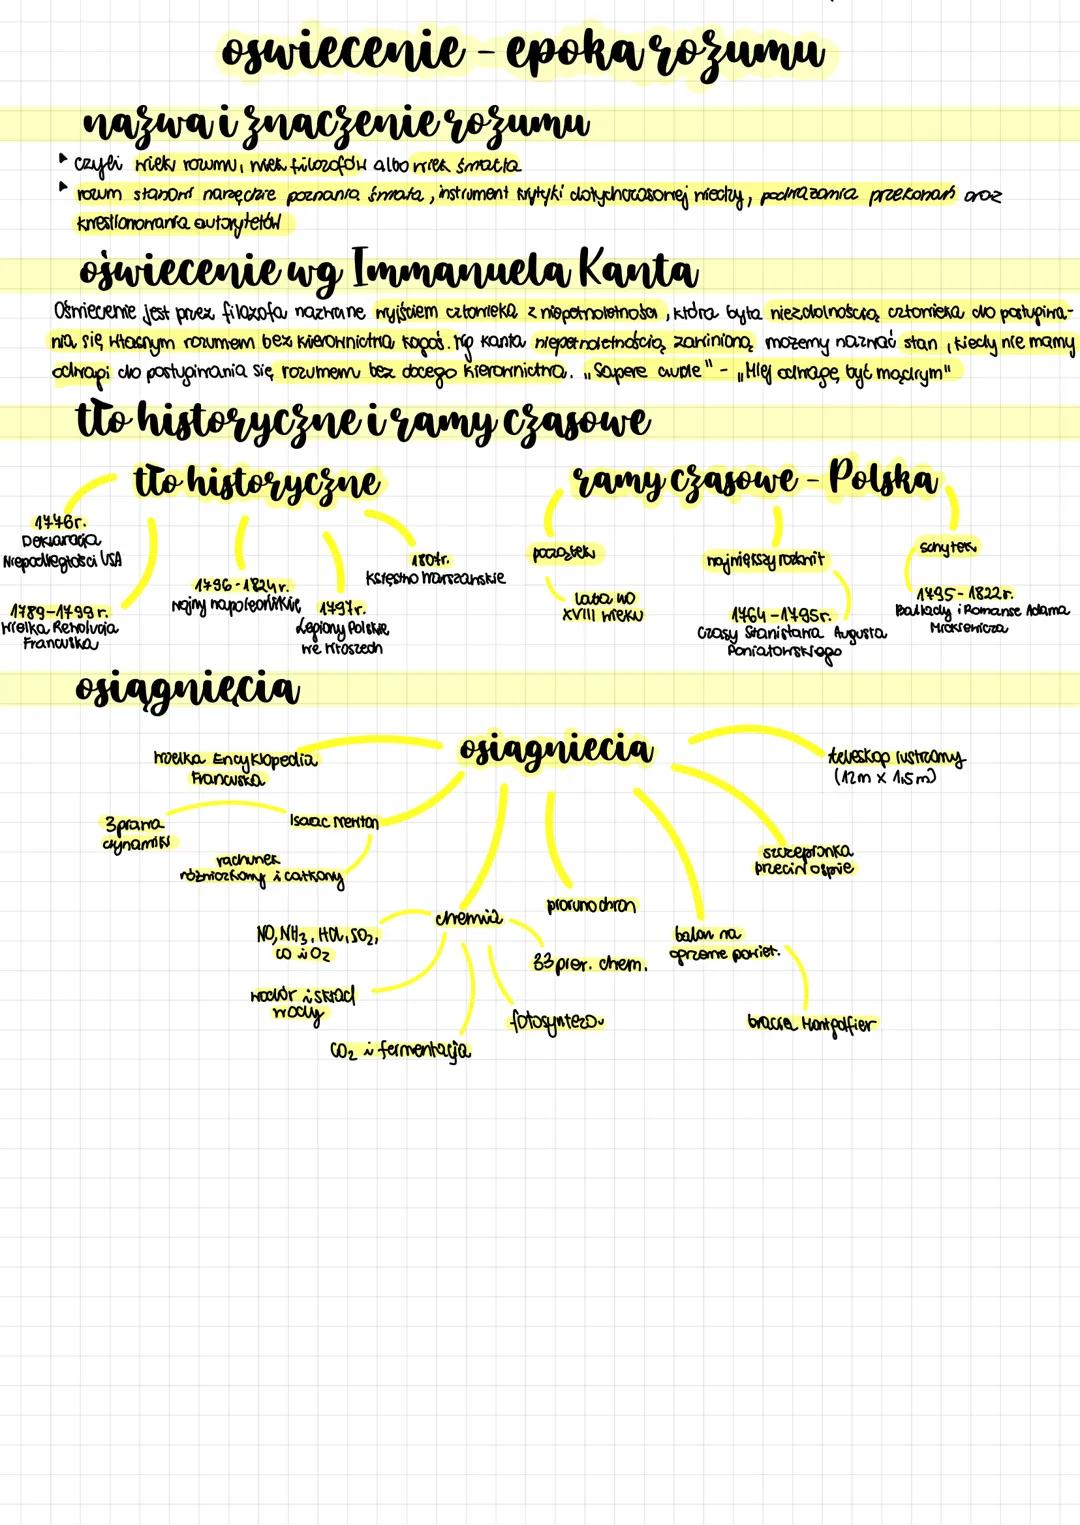 oswiecenie - epoka rozumu
nazwa i znaczenie rozumu
czyli wiek rozumu, wiek filozofów albo wiek światła
rozum stanowi narzędzie poznania świata, instrument krytyki dotychczasowej wiedzy, podważania przekonań oraz
kwestionowania autorytetów
oświecenie wg Immanuela Kanta
Oświecenie jest przez filozofa nazwane wyjściem człowieka z niepełnoletności, która była niezdolnością człowieka do posługiwa-
nia się własnym rozumem bez kierownictwa kogoś. Wg Kanta niepełnoletnością zawinioną możemy nazwać stan, kiedy nie mamy
odwagi do posługiwania się rozumem bez obcego kierownictwa. „Sapere aude" - „Miej odwagę być mądrym"
tło historyczne i ramy czasowe
tło historyczne
1776r.
Deklaracja
Niepodległości USA
1789-1799 r.
Wielka Rewolucja
Francuska
1796-1824 r.
Wojny napoleońskie
1797r.
Legiony Polskie
we Włoszech
1807r.
Księstwo Warszawskie
ramy czasowe - Polska
początek
lata 40
XVIII wieku
największy rozkwit
1764-1795r.
Czasy Stanisława Augusta
Poniatowskiego
schyłek
1795-1822 r.
Ballady i Romanse Adama
Mickiewicza
osiągnięcia
osiągniecia
Wielka Encyklopedia
Francuska
Isaac Newton
3 prawa
dynamiki
rachunek
różniczkowy i całkowy
chemia
NO, NH3, HCl, SO2,
CO i O2
wodór i skład
wody
CO2 i fermentacja
fotosynteza
33 pier. chem.
piorunochron
balon na
ogrzane powiet.
bracia Montgolfier
szczepionka
przeciw ospie
teleskop lustrzany
(12m x 1,5m)